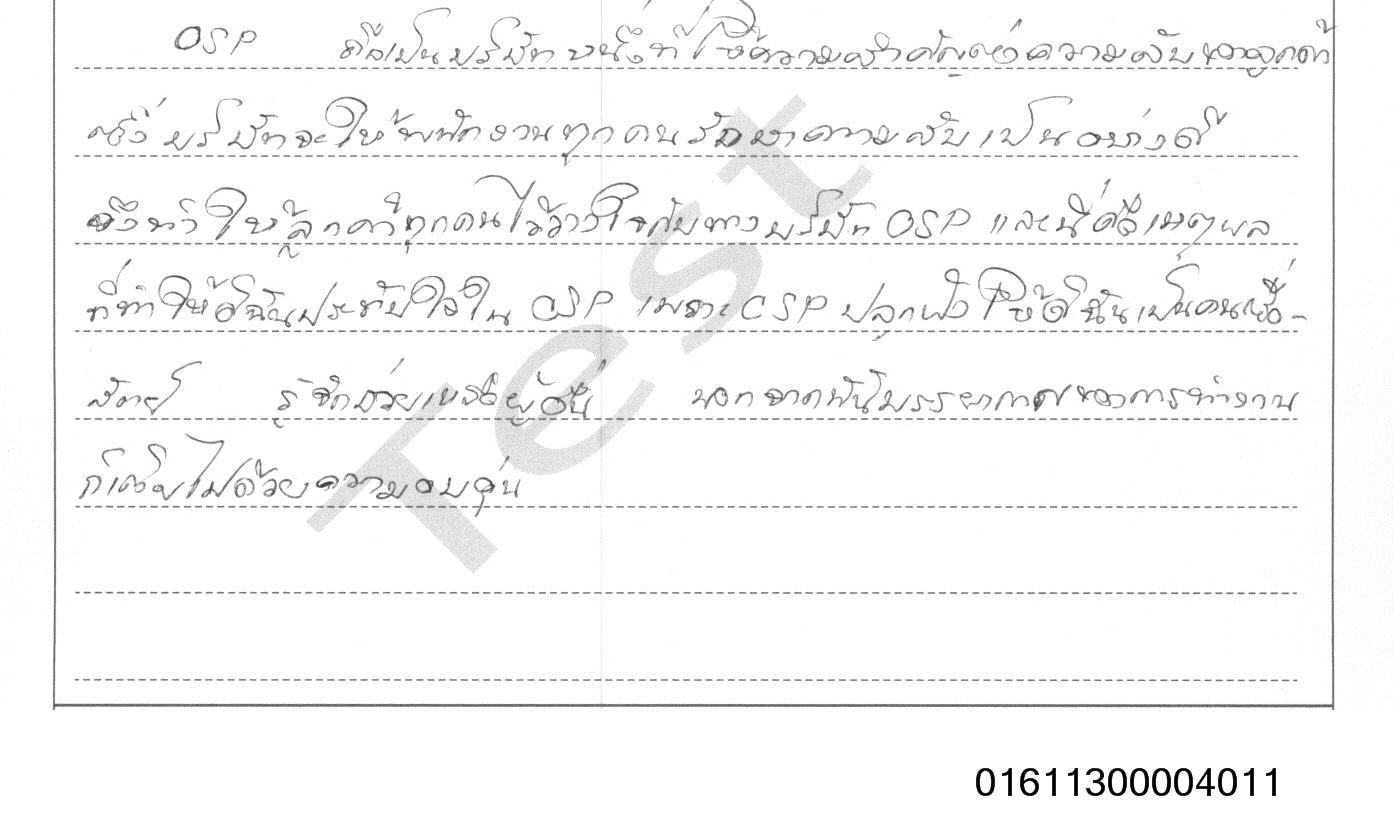 OSP ถือเป็นบริษัทหนึ่งที่ให้ความสำคัญต่อความลับของลูกค้า
ซึ่งบริษัทจะให้พนักงานทุกคนรักษาความลับเป็นอย่างดี
จึงทำให้ลูกค้าทุกคนไว้วางใจกับทางบริษัท OSP และนี่คือเหตุผล
ที่ทำให้ดิฉันประทับใจใน OSP เพราะ OSP ปลูกฝังให้ดิฉันเป็นคนซื่อ-
สัตย์ รู้จักช่วยเหลือผู้อื่น นอกจากนั้นบรรยากาศของการทำงาน
ก็เต็มไปด้วยความอบอุ่น
Test
01611300004011